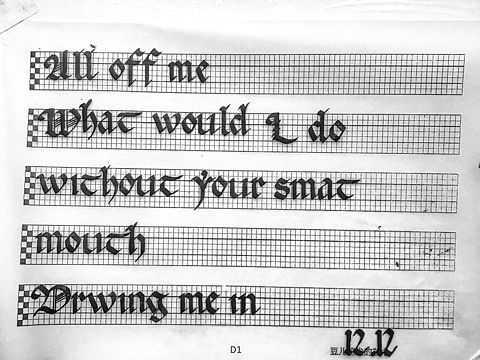 All off me
What would I do
without your smat
mouth
Drwing me in
12.12
D1